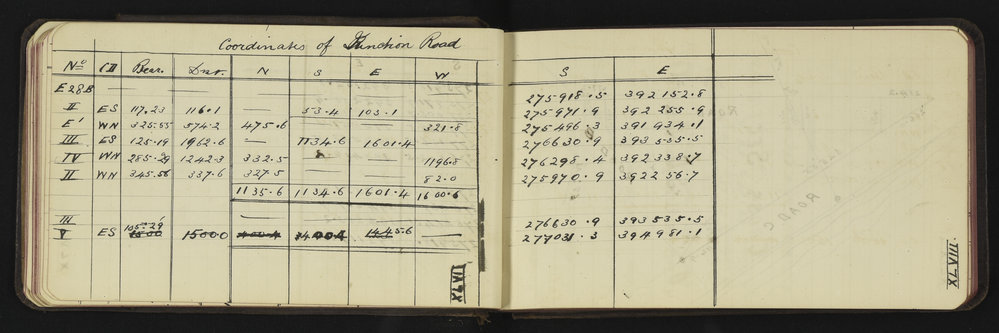 Coordinates of Junction Road
No CD Bear. Dist. N S E W S E
E28B — — — — — — 275918.5 392152.8
II ES 117.23 116.1 — 53.4 103.1 — 275971.9 392255.9
E' WN 325.55 574.2 475.6 — — 321.8 275496.3 391934.1
III ES 125.19 1962.6 — 1134.6 1601.4 — 276630.9 393535.5
IV WN 285.29 1242.3 332.5 — — 1196.8 276298.4 392338.7
II WN 345.56 337.6 327.5 — — 82.0 275970.9 392256.7
1135.6 1134.6 1601.4 1600.6
III — — — — 276630.9 393535.5
105.29
V ES 1500.0 1445.6 — 277031.3 394981.1
XLVII
XLVIII